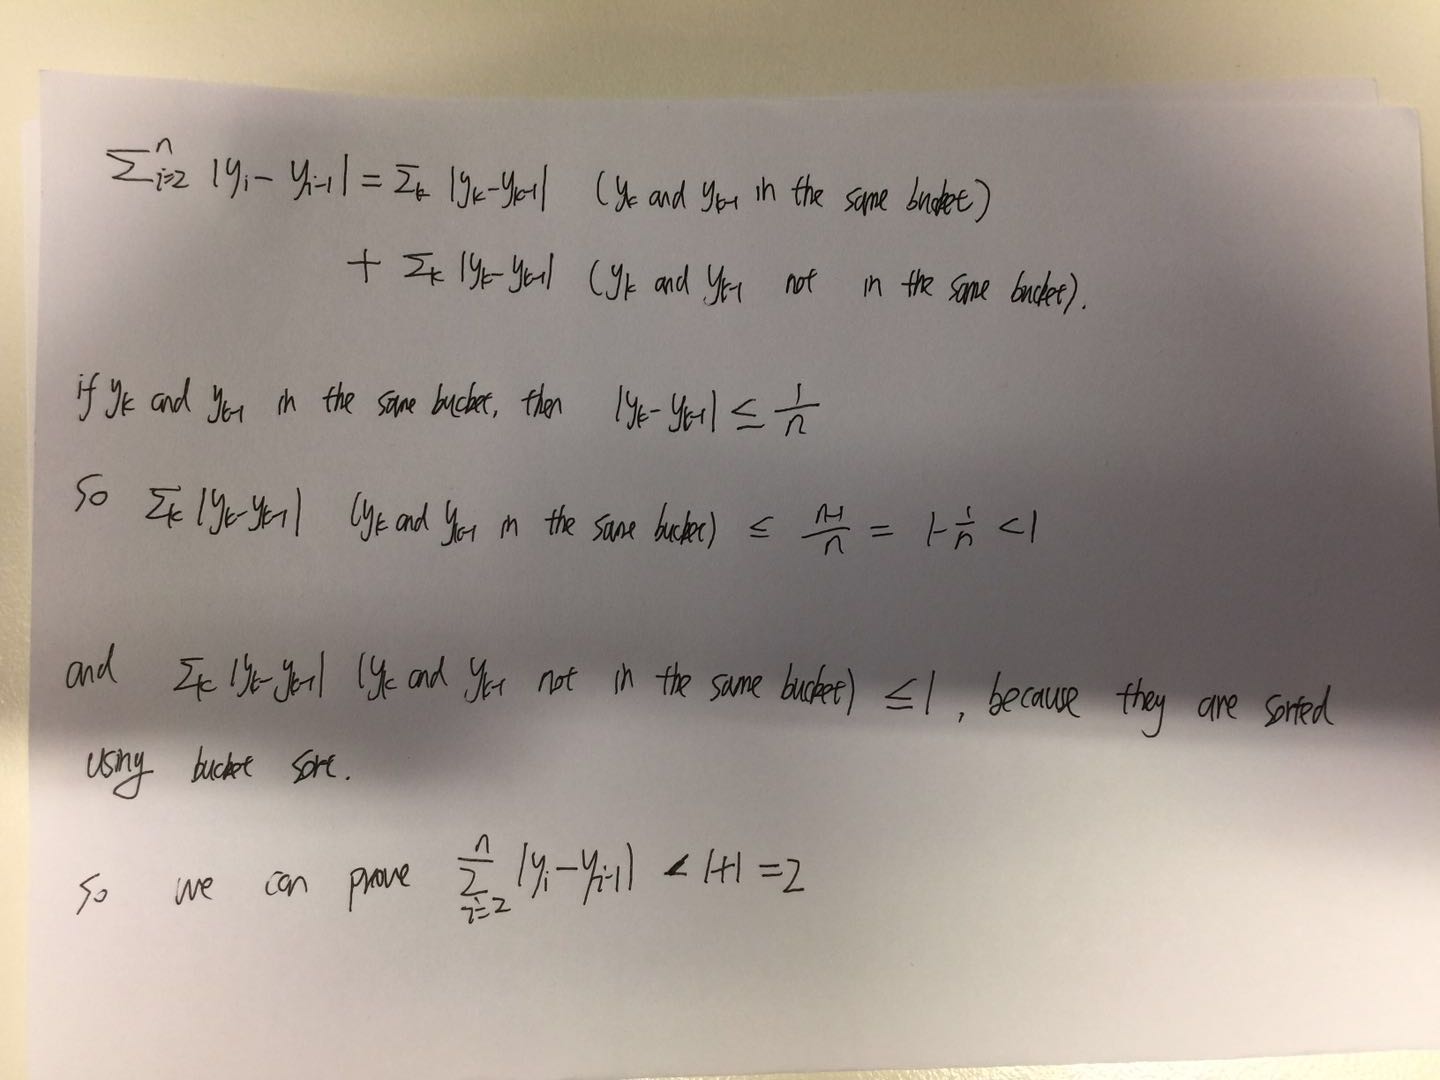 ∑ⁿᵢ₌₂ |yᵢ - yᵢ₋₁| = ∑ₖ |yₖ - yₖ₋₁| (yₖ and yₖ₋₁ in the same bucket)
+ ∑ₖ |yₖ - yₖ₋₁| (yₖ and yₖ₋₁ not in the same bucket).
if yₖ and yₖ₋₁ in the same bucket, then |yₖ - yₖ₋₁| ≤ 1/n
So ∑ₖ |yₖ - yₖ₋₁| (yₖ and yₖ₋₁ in the same bucket) ≤ (n-1)/n = 1 - 1/n < 1
and ∑ₖ |yₖ - yₖ₋₁| (yₖ and yₖ₋₁ not in the same bucket) ≤ 1, because they are sorted
using bucket sort.
So we can prove ∑ⁿᵢ₌₂ |yᵢ - yᵢ₋₁| < 1+1 = 2